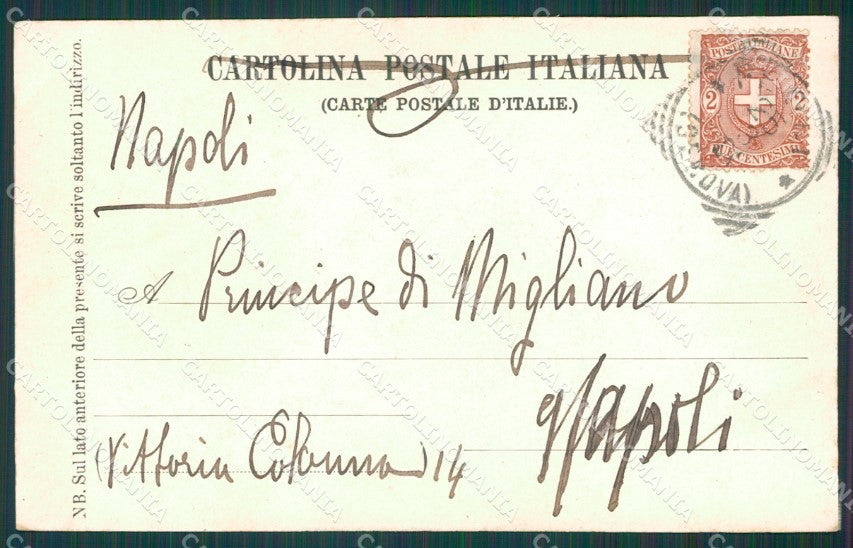 CARTOLINA POSTALE ITALIANA
(CARTE POSTALE D'ITALIE.)
POSTE ITALIANE
2 2
DUE CENTESIMI
OVA)
Napoli
A Principe di Migliano
Napoli
(Vittoria Colonna) 14
NB. Sul lato anteriore della presente si scrive soltanto l'indirizzo.
CARTOLINOMANIA